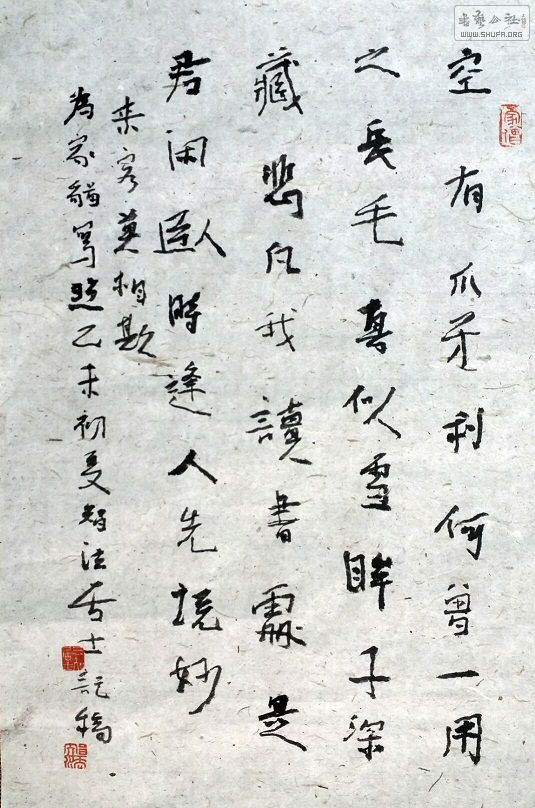 書藝公社
WWW.SHUFA.ORG
空有爪牙利何曾一用
之長毛真似雪眸子深
藏悲凡我讀書處是
君閑臥時逢人先妙
来客莫相欺
為家貓寫照乙未初夏智法居士記稿